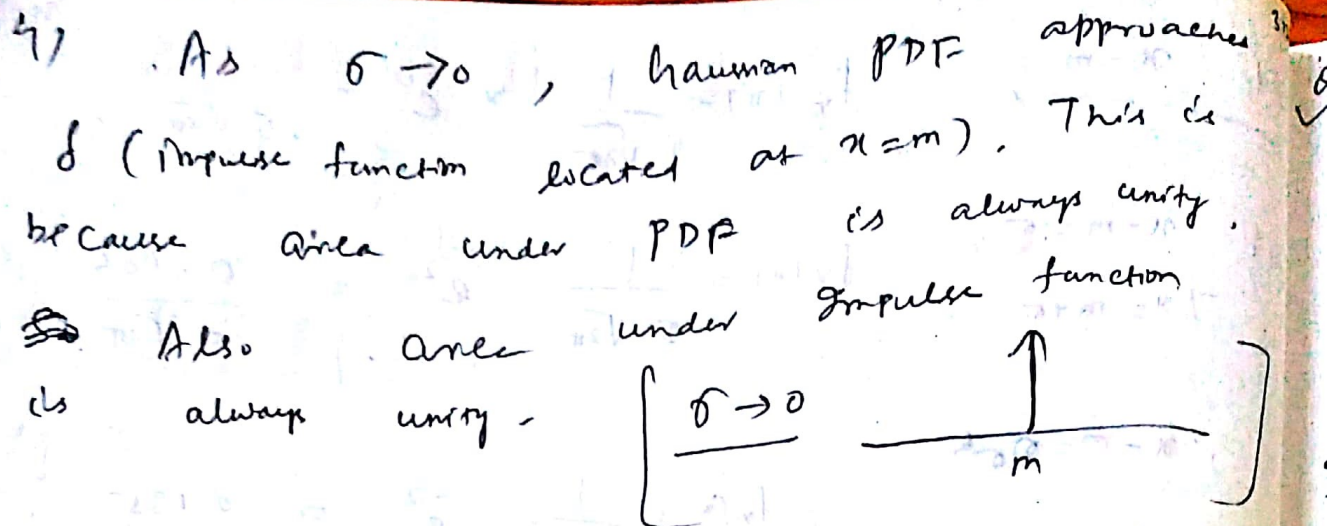 4) . As σ→0, Gaussian PDF approaches
δ (impulse function located at x=m). This is
because area under PDF is always unity.
Also area under Impulse function
is always unity. [ σ→0
m ]